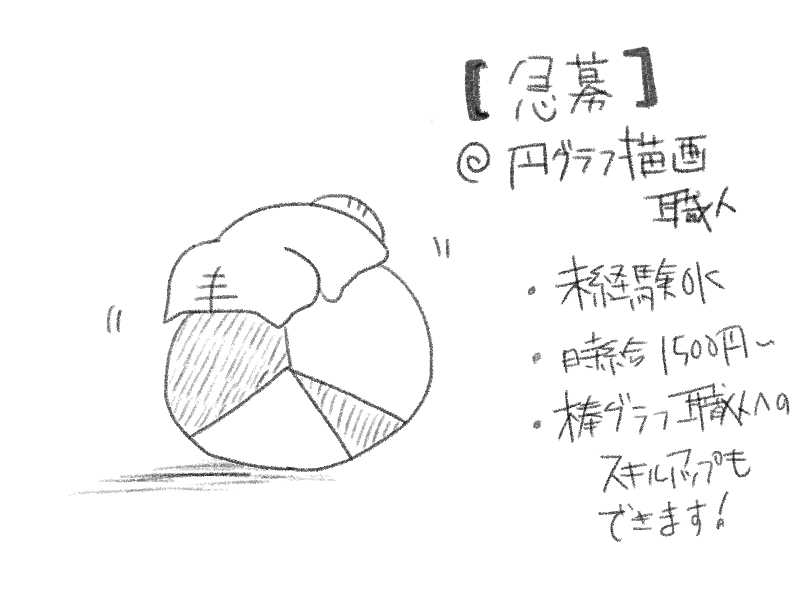 【急募】
@ 円グラフ描画
職人
・未経験OK
・時給1500円〜
・棒グラフ職人への
スキルアップも
できます!